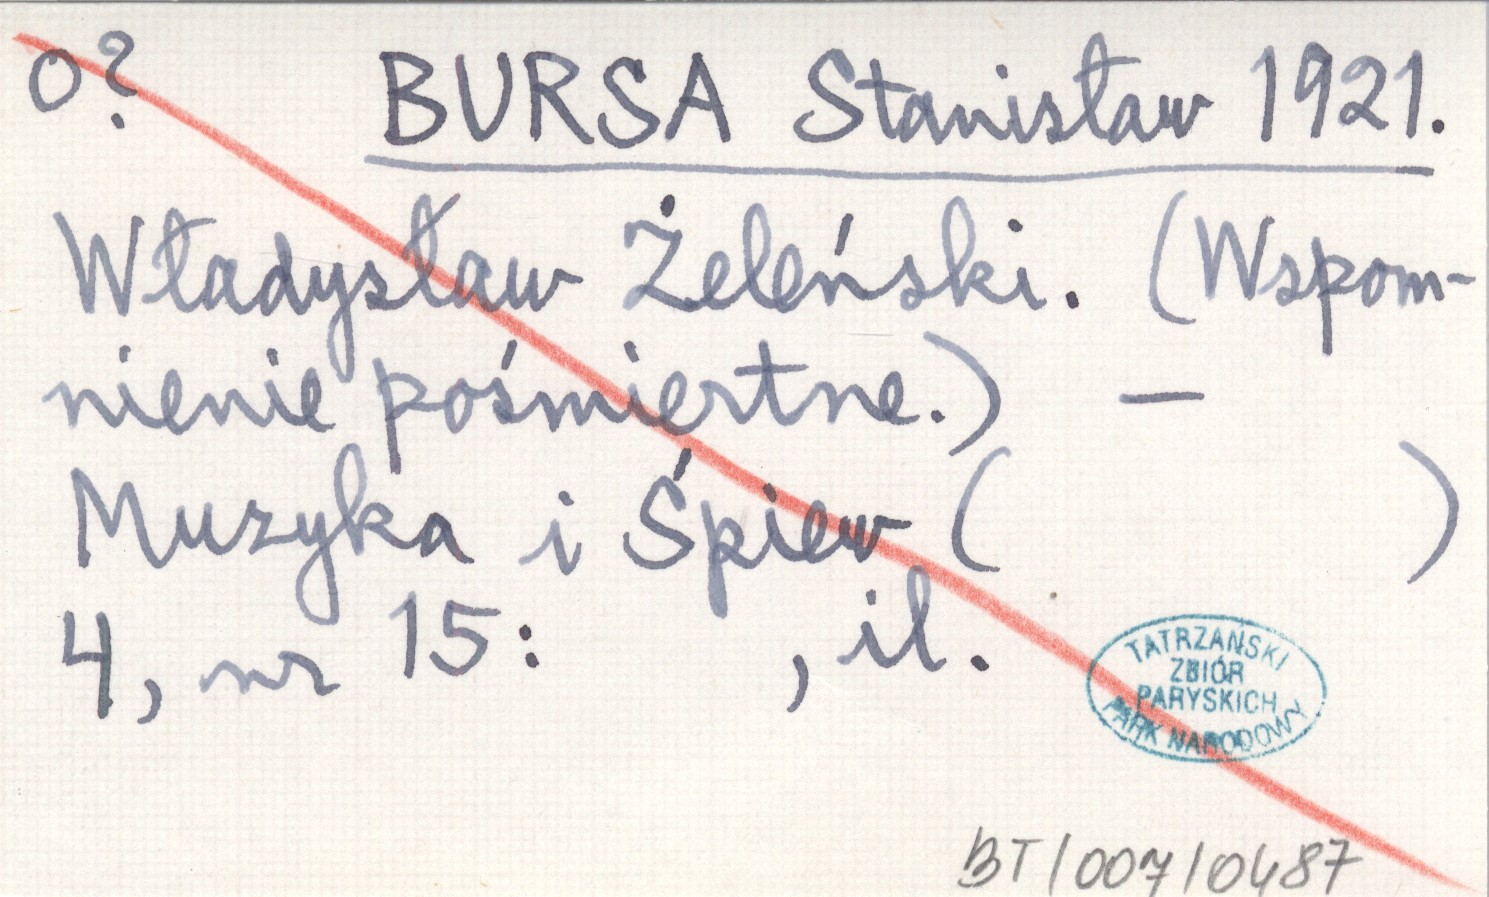 o?
BURSA Stanisław 1921.
Władysław Żeleński. (Wspom-
nienie pośmiertne.) —
Muzyka i Śpiew ( )
4, nr 15: , il.
TATRZAŃSKI
ZBIÓR
PARYSKICH
PARK NARODOWY
BT/007/0487